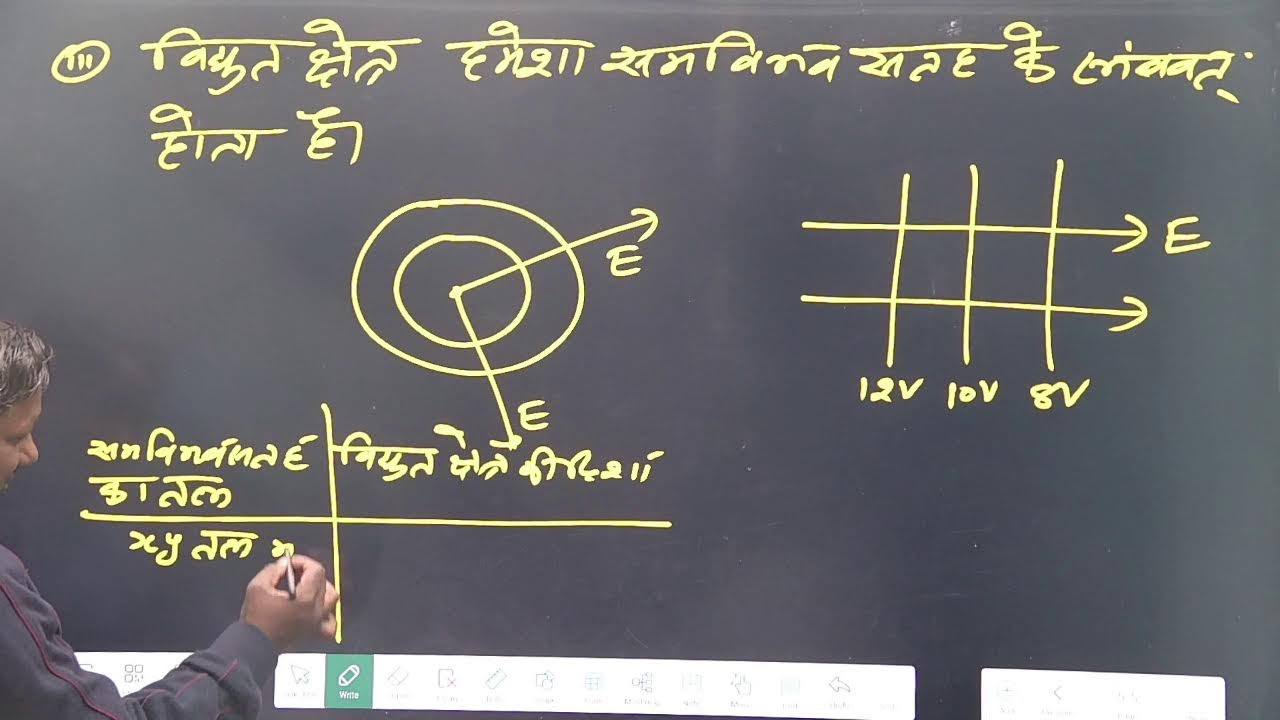 (iii) विद्युत क्षेत्र हमेशा समविभव सतह के लंबवत्
होता है।
E
E
E
12V 10V 8V
समविभव सतह
का तल
विद्युत क्षेत्र की दिशा
xy तल में
Write